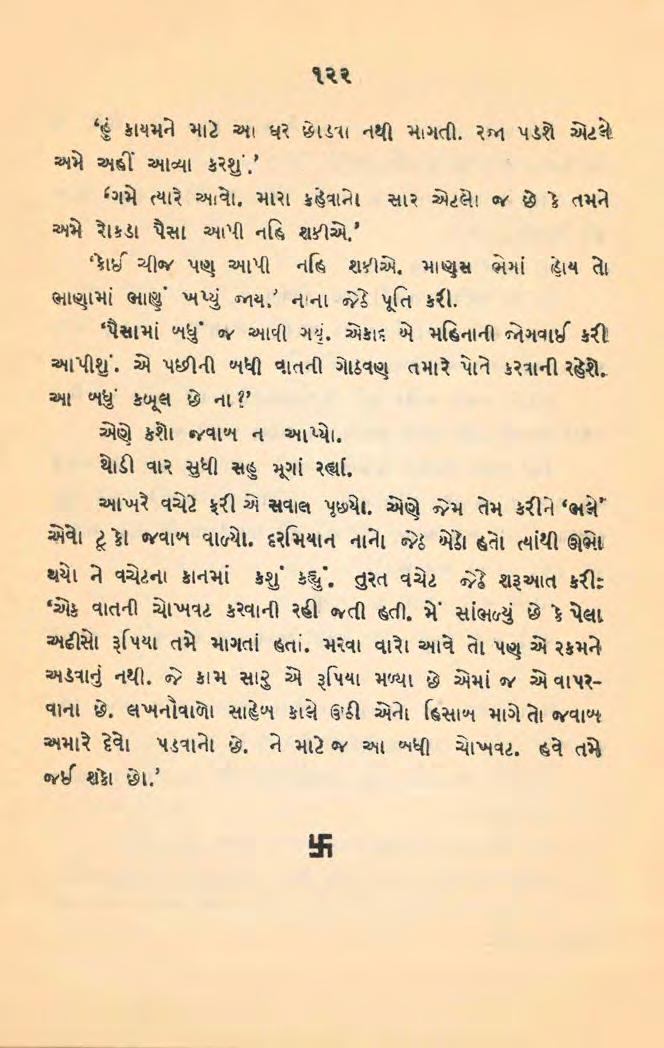 ૧૨૨
‘હું કાયમને માટે આ ઘર છોડવા નથી માગતી. રજા પડશે એટલે
અમે અહીં આવ્યા કરશું.’
‘ગમે ત્યારે આવો. મારા કહેવાનો સાર એટલો જ છે કે તમને
અમે રોકડા પૈસા આપી નહિ શકીએ.’
‘કોઈ ચીજ પણ આપી નહિ શકીએ. માણસ ભેગાં હોય તો
ભાણામાં ભાણું ખપ્યું જાય.’ નાના જેઠે પૂર્તિ કરી.
‘પૈસામાં બધું જ આવી ગયું. એકાદ બે મહિનાની જોગવાઈ કરી
આપીશું. એ પછીની બધી વાતની ગોઠવણ તમારે પોતે કરવાની રહેશે.
આ બધું કબૂલ છે ના?’
એણે કશો જવાબ ન આપ્યો.
થોડી વાર સુધી સહુ મૂગાં રહ્યાં.
આખરે વચેટે ફરી એ સવાલ પૂછ્યો. એણે જેમ તેમ કરીને ‘ભલે’
એવો ટૂંકો જવાબ વાળ્યો. દરમિયાન નાનો જેઠ બેઠો હતો ત્યાંથી ઊભો
થયો ને વચેટના કાનમાં કશું કહ્યું. તુરત વચેટ જેઠે શરૂઆત કરી:
‘એક વાતની ચોખવટ કરવાની રહી જતી હતી. મેં સાંભળ્યું છે કે પેલા
અઢીસો રૂપિયા તમે માગતાં હતાં. મરવા વારો આવે તો પણ એ રકમને
અડવાનું નથી. જે કામ સારુ એ રૂપિયા મળ્યા છે એમાં જ એ વાપર-
વાના છે. લખનૌવાળો સાહેબ કાલે ઊઠી એનો હિસાબ માગે તો જવાબ
અમારે દેવો પડવાનો છે. ને માટે જ આ બધી ચોખવટ. હવે તમે
જઈ શકો છો.’
卐